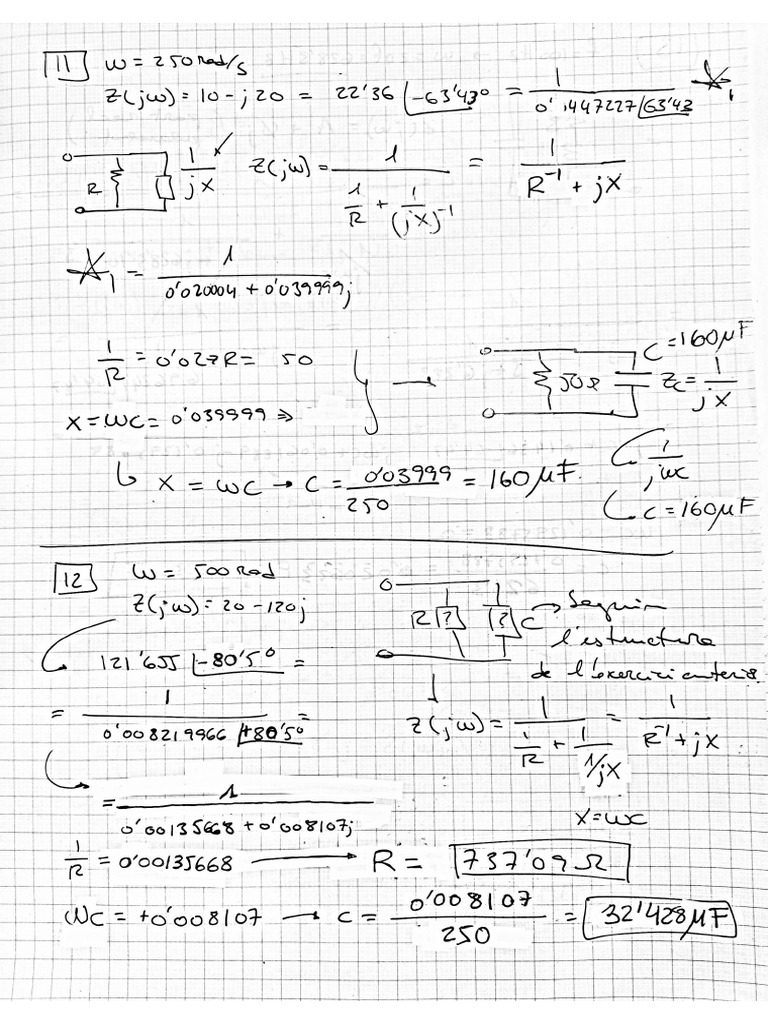 11 ω = 250 rad/s
Z(jω) = 10 - j20 = 22'36 ∠-63'43° = 1 / 0'0447227 ∠63'43 ☆1
R 1/jX Z(jω) = 1 / (1/R + 1/(jX)^-1) = 1 / (R^-1 + jX)
☆1 = 1 / (0'020004 + 0'039999j)
1/R = 0'02 → R = 50
X = ωC = 0'039999 ⇒
50Ω C = 160μF Zc = 1/jX
↳ X = ωC → C = 0'03999 / 250 = 160μF.
1/jωC
C = 160μF
12 ω = 500 rad
Z(jω) = 20 - 120j
R ? ? C → Seguim l'estructura de l'exercici anterior
121'655 ∠-80'5° =
= 1 / 0'008219966 ∠+80'5° =
Z(jω) = 1 / (1/R + 1/(1/jX)) = 1 / (R^-1 + jX)
= 1 / (0'00135668 + 0'008107j)
X = ωC
1/R = 0'00135668 → R = 737'09Ω
ωC = +0'008107 → C = 0'008107 / 250 = 32'428μF